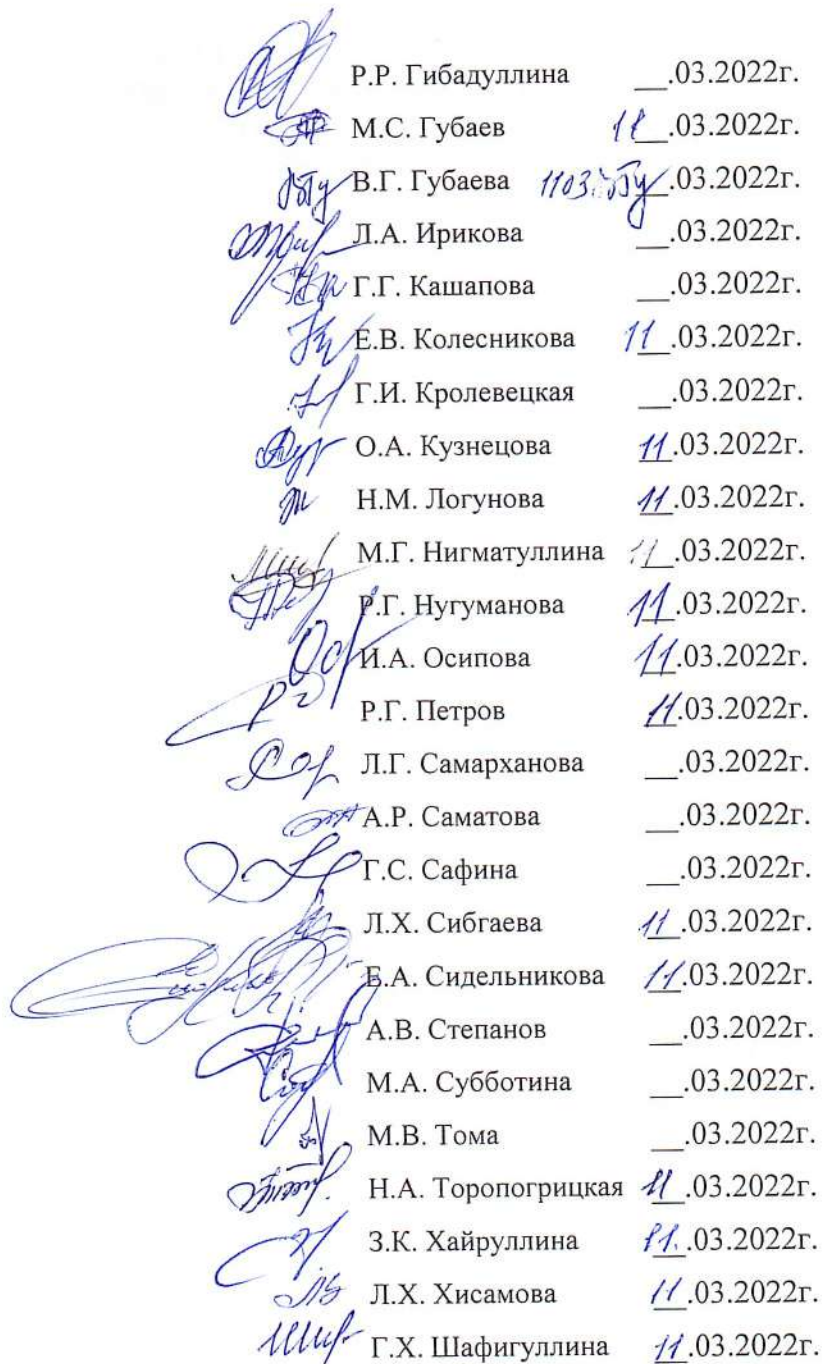 Р.Р. Гибадуллина __.03.2022г.
М.С. Губаев 11.03.2022г.
В.Г. Губаева 1103. __.03.2022г.
Л.А. Ирикова __.03.2022г.
Г.Г. Кашапова __.03.2022г.
Е.В. Колесникова 11.03.2022г.
Г.И. Кролевецкая __.03.2022г.
О.А. Кузнецова 11.03.2022г.
Н.М. Логунова 11.03.2022г.
М.Г. Нигматуллина 11.03.2022г.
Р.Г. Нугуманова 11.03.2022г.
И.А. Осипова 11.03.2022г.
Р.Г. Петров 11.03.2022г.
Л.Г. Самарханова __.03.2022г.
А.Р. Саматова __.03.2022г.
Г.С. Сафина __.03.2022г.
Л.Х. Сибгаева 11.03.2022г.
Е.А. Сидельникова 11.03.2022г.
А.В. Степанов __.03.2022г.
М.А. Субботина __.03.2022г.
М.В. Тома __.03.2022г.
Н.А. Торопогрицкая 11.03.2022г.
З.К. Хайруллина 11..03.2022г.
Л.Х. Хисамова 11.03.2022г.
Г.Х. Шафигуллина 11.03.2022г.